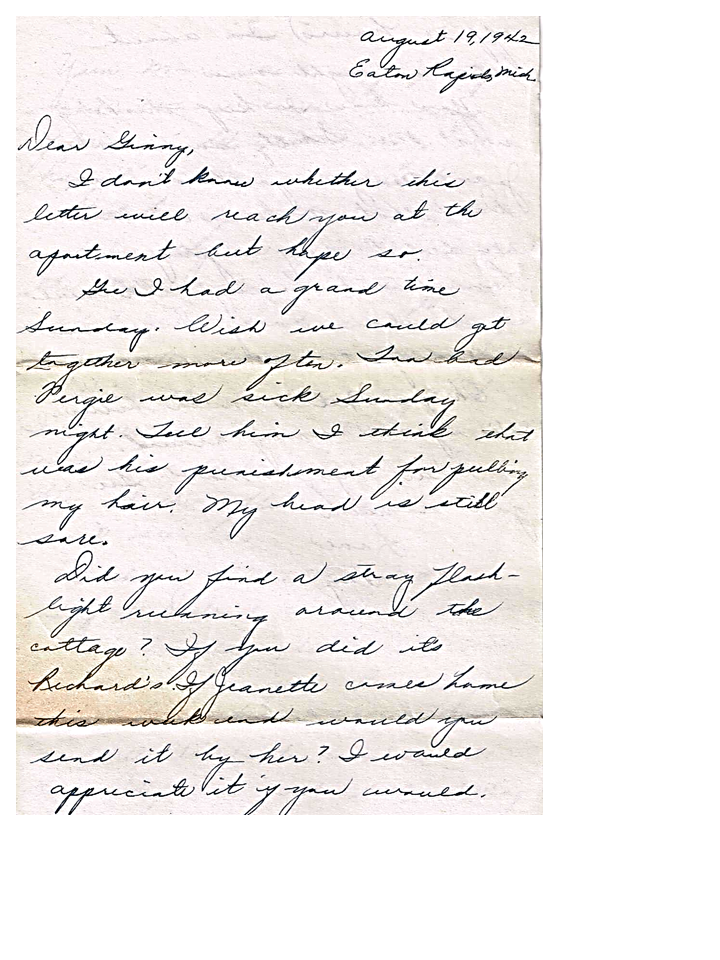 August 19, 1942
Eaton Rapids, Mich
Dear Ginny,
I don't know whether this
letter will reach you at the
apartment but hope so.
Gee I had a grand time
Sunday. Wish we could get
together more often. Too bad
Pergie was sick Sunday
night. Tell him I think that
was his punishment for pulling
my hair. My head is still
sore.
Did you find a stray flash-
light running around the
cottage? If you did its
Richard's. If Jeanette comes home
this weekend would you
send it by her? I would
appreciate it if you would.